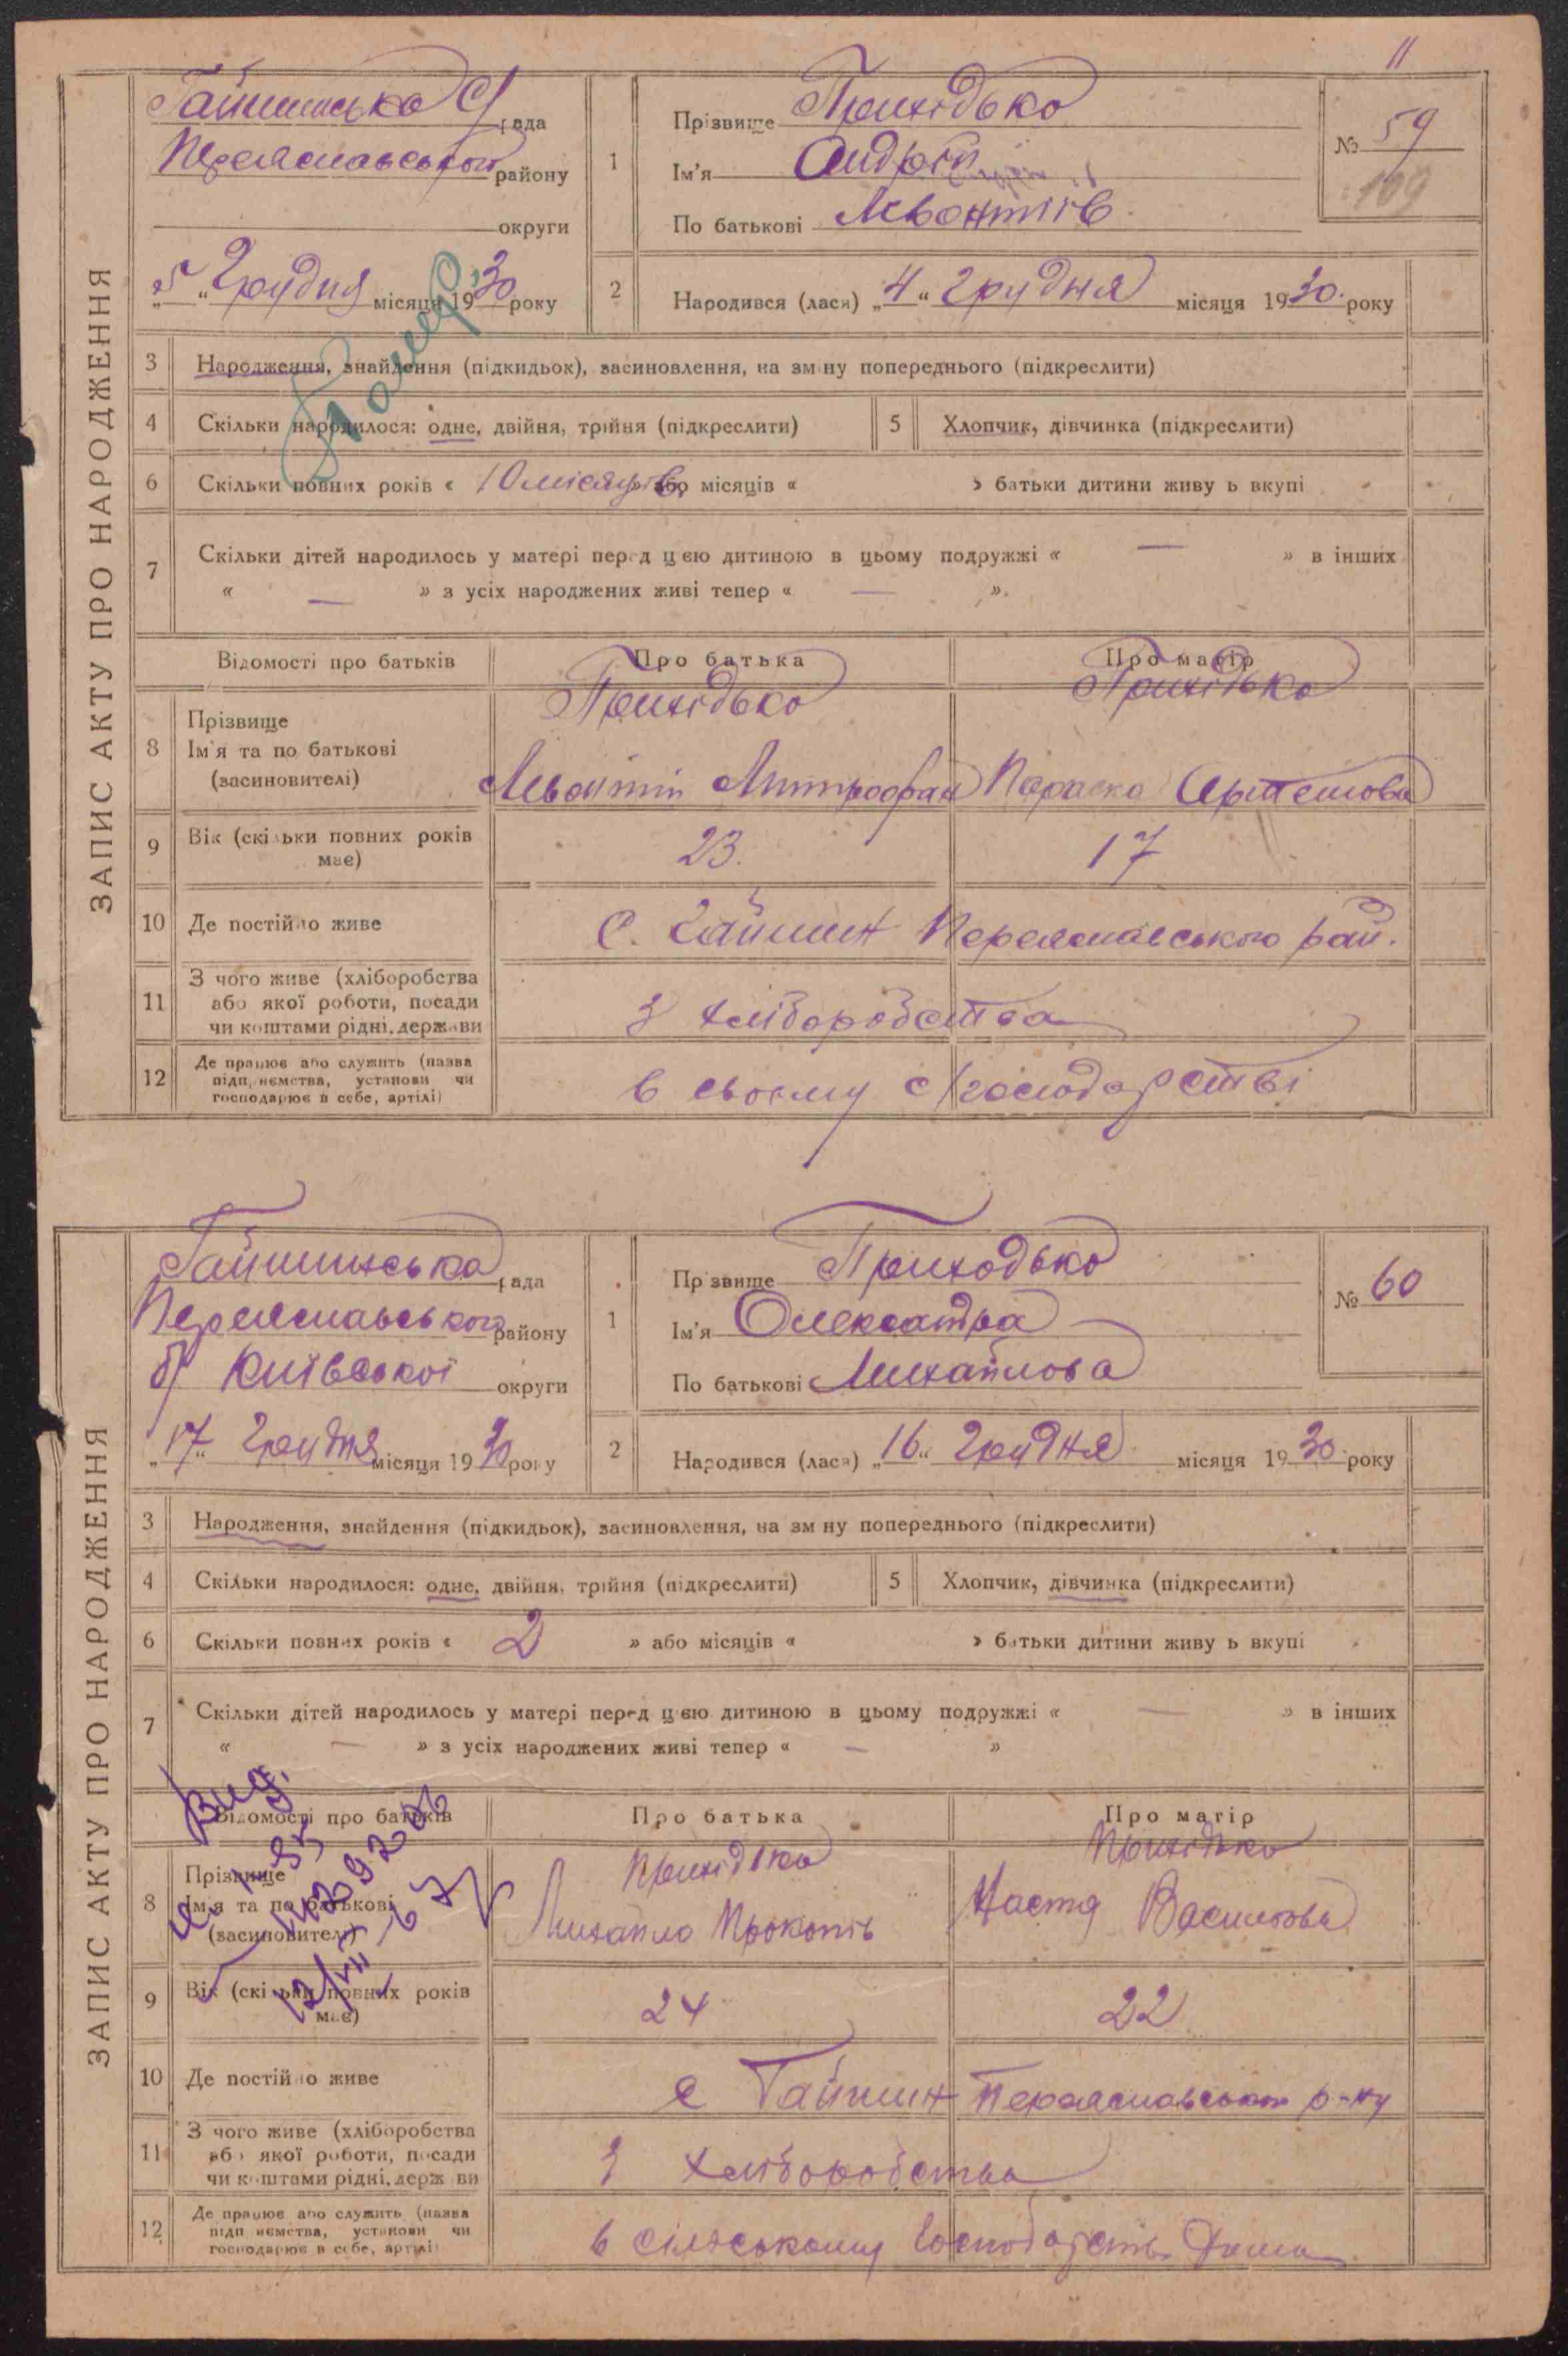 11
ЗАПИС АКТУ ПРО НАРОДЖЕННЯ
Гайшинська С/рада
Переяславського району
округи
„5“ Грудня місяця 1930 року
1
Прізвище Прихідько
Ім'я Андрій
По батькові Левонтіїв
№ 59
109
2
Народився (лася) „4“ Грудня місяця 1930 року
3 Народження, знайдення (підкидьок), засиновлення, на зміну попереднього (підкреслити)
4 Скільки народилося: одне, двійня, трійня (підкреслити)
5 Хлопчик, дівчинка (підкреслити)
6 Скільки повних років « 10 місяців » або місяців « » батьки дитини живуть вкупі
7 Скільки дітей народилось у матері перед цією дитиною в цьому подружжі « — » в інших
« — » з усіх народжених живі тепер « — »
Відомості про батьків Про батька Про матір
8 Прізвище
Ім'я та по батькові
(засиновителі)
Прихідько Прихідько
Левонтій Митрофан Параска Артемова
9 Вік (скільки повних років має) 23. 17
10 Де постійно живе с. Гайшин Переяславського рай.
11 З чого живе (хліборобства
або якої роботи, посади
чи коштами рідні, держави
З хліборобства
12 Де працює або служить (назва
підприємства, установи чи
господарює в себе, артілі)
в своєму с/господарстві
ЗАПИС АКТУ ПРО НАРОДЖЕННЯ
Гайшинська рада
Переяславського району
б/ Київської округи
„17“ Грудня місяця 1930 року
1
Прізвище Приходько
Ім'я Олександра
По батькові Михайлова
№ 60
2
Народився (лася) „16“ Грудня місяця 1930 року
3 Народження, знайдення (підкидьок), засиновлення, на зміну попереднього (підкреслити)
4 Скільки народилося: одне, двійня, трійня (підкреслити)
5 Хлопчик, дівчинка (підкреслити)
6 Скільки повних років « 2 » або місяців « » батьки дитини живуть вкупі
7 Скільки дітей народилось у матері перед цією дитиною в цьому подружжі « — » в інших
« — » з усіх народжених живі тепер « — »
Вид.
12/VII-67
Відомості про батьків Про батька Про матір
8 Прізвище
Ім'я та по батькові
(засиновителі)
Прихідько Прихідько
Михайло Прокопів Настя Василова
9 Вік (скільки повних років має) 24 22
10 Де постійно живе с Гайшин Переяславського р-ну
11 З чого живе (хліборобства
або якої роботи, посади
чи коштами рідні, держави
З хліборобства
12 Де працює або служить (назва
підприємства, установи чи
господарює в себе, артілі)
в сільському господарстві дома